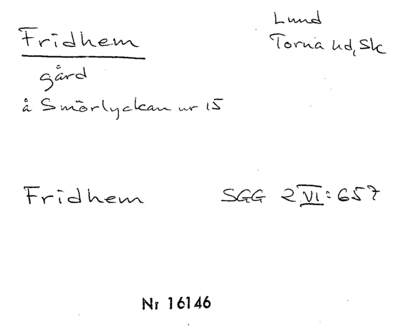 Fridhem
gård
å Smörlyckan nr 15
Lund
Torna hd, Sk
Fridhem SGG 2 VI: 657
Nr 16146